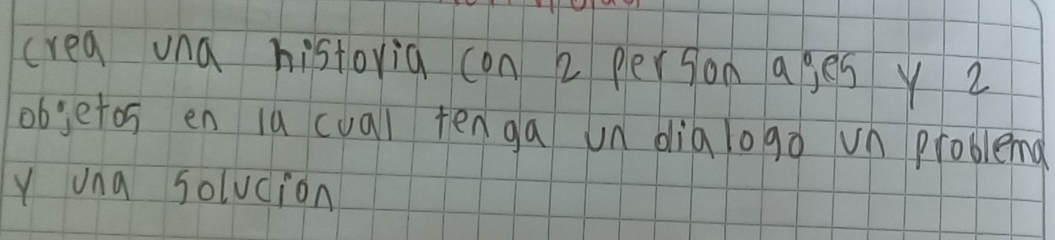 crea una historia con 2 personages y 2
objetos en la cual tenga un dialogo un problema
y una solucion